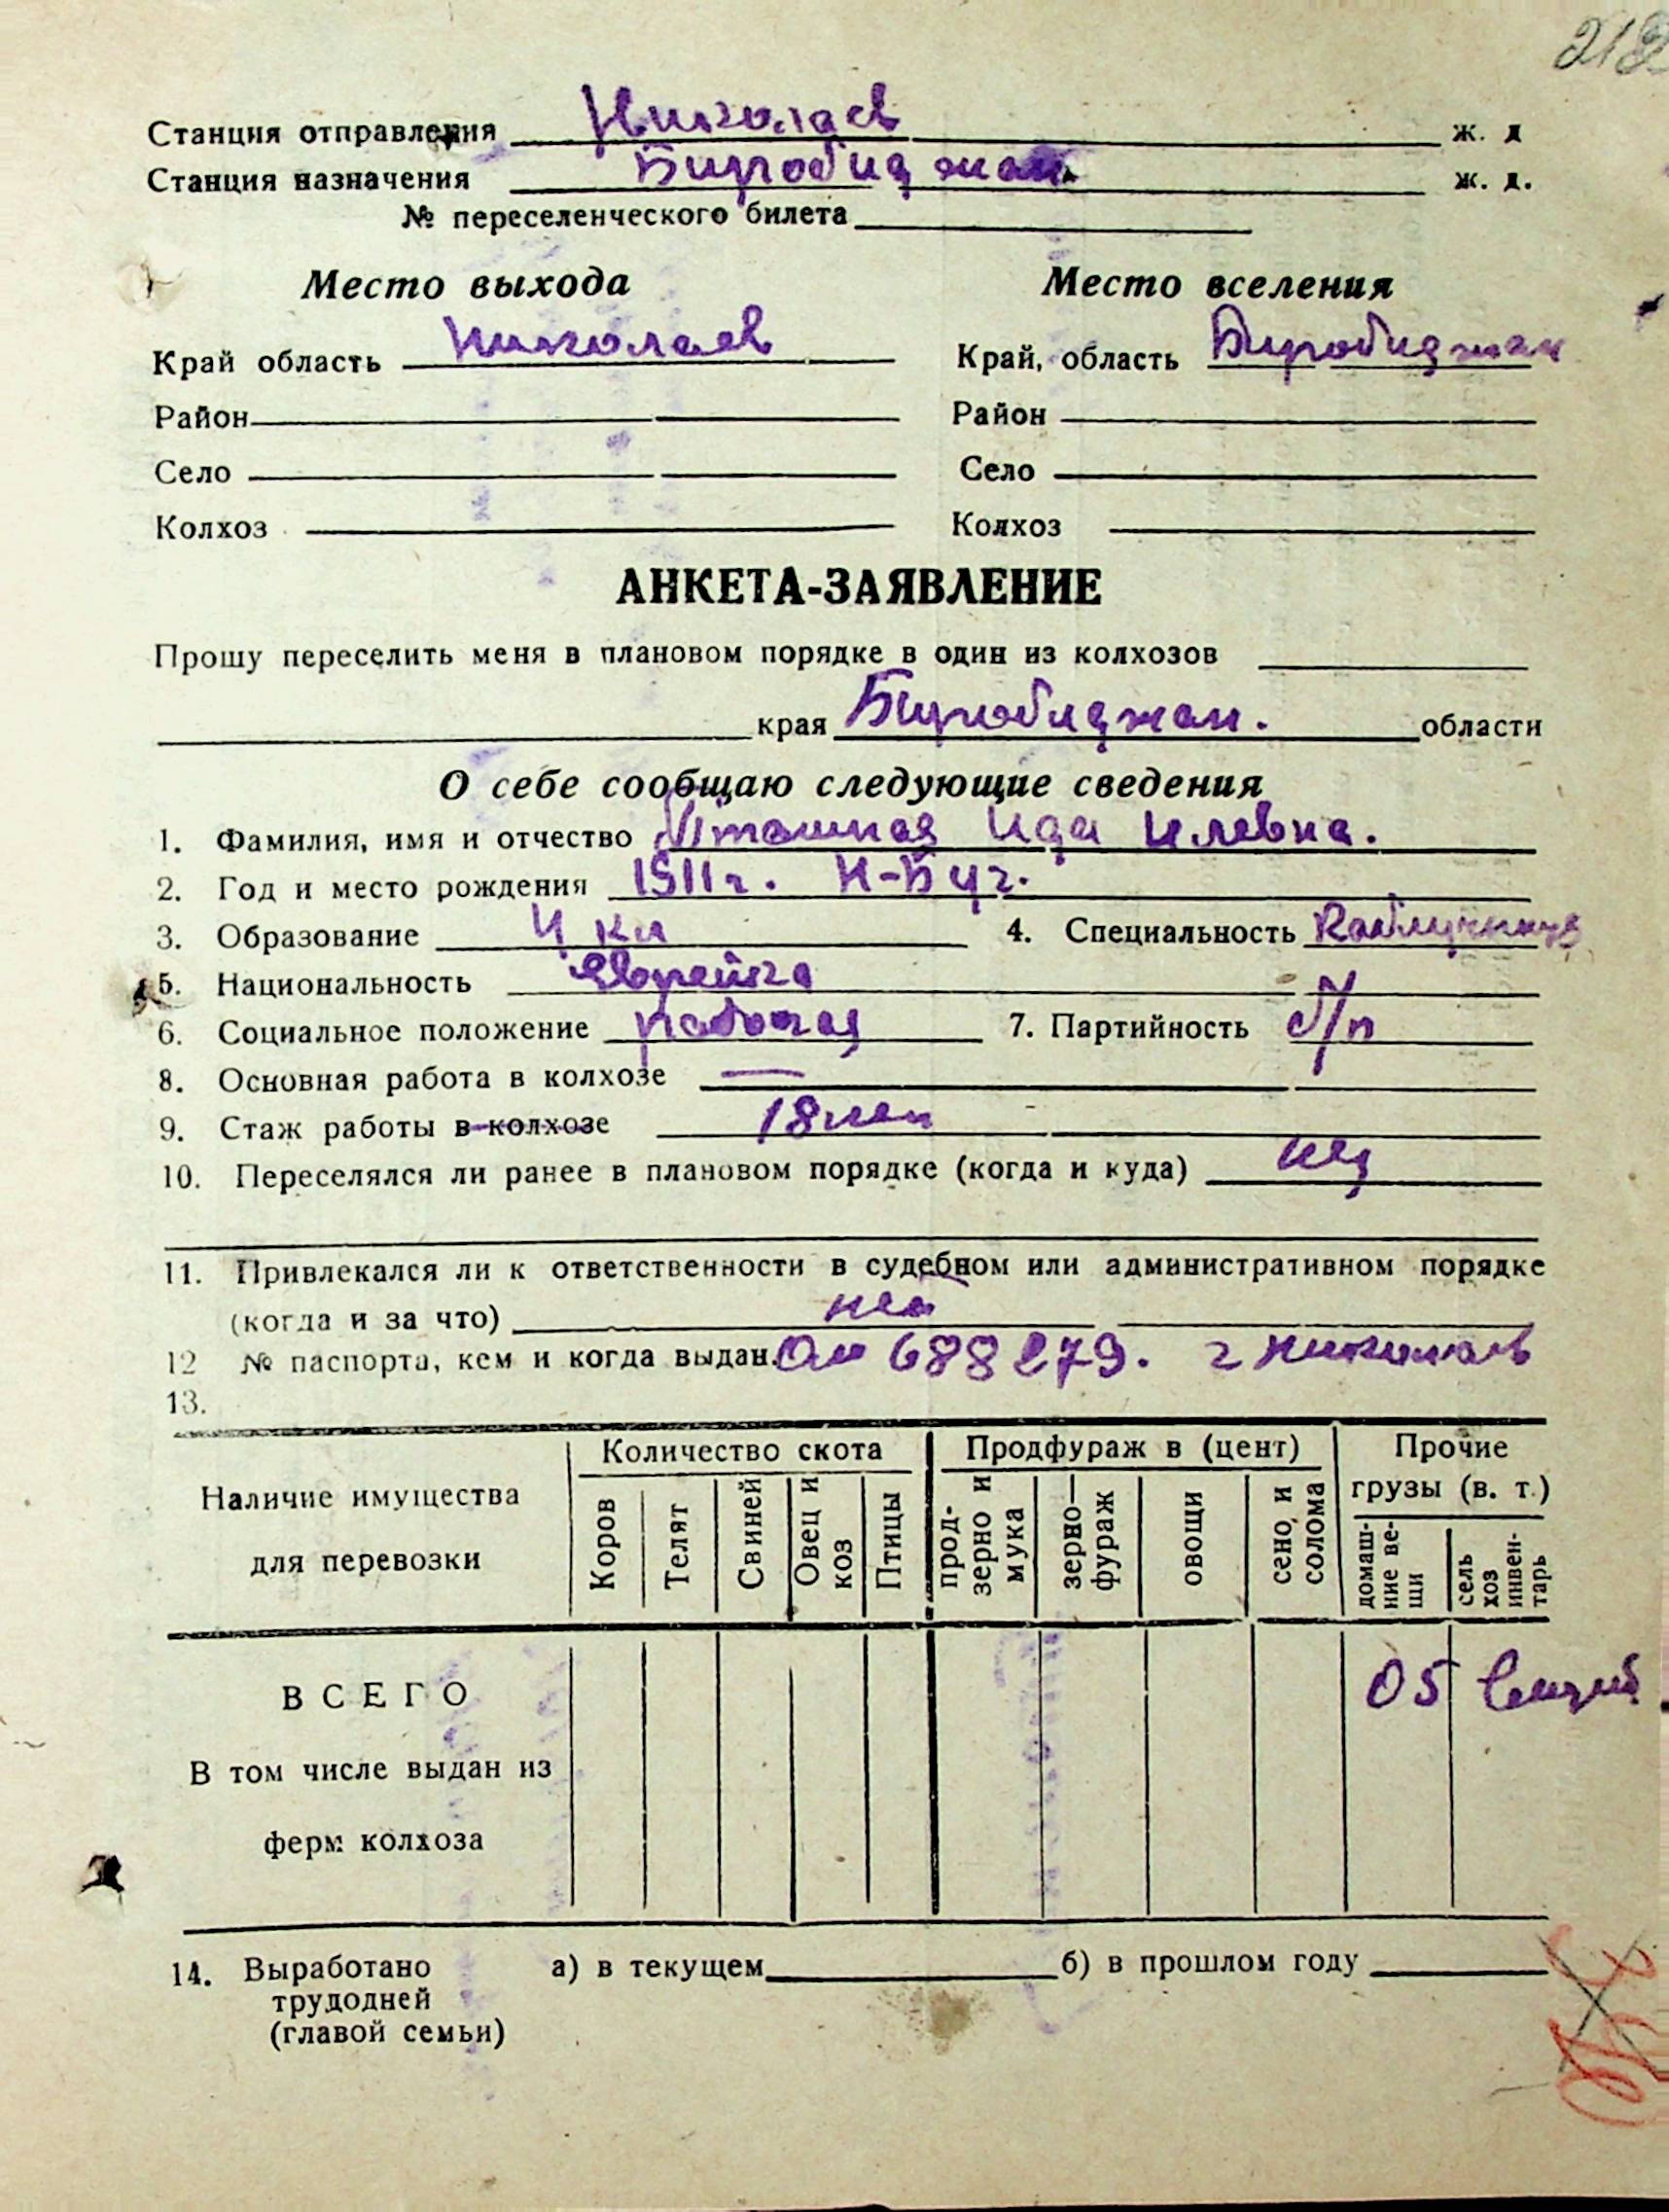 212
Станция отправления Николаев ж. д
Станция назначения Биробиджан ж. д.
№ переселенческого билета
Место выхода Место вселения
Край область Николаев Край, область Биробиджан
Район Район
Село Село
Колхоз Колхоз
АНКЕТА-ЗАЯВЛЕНИЕ
Прошу переселить меня в плановом порядке в один из колхозов
края Биробиджан. области
О себе сообщаю следующие сведения
1. Фамилия, имя и отчество Ида
2. Год и место рождения 1911 г. Н-Буг.
3. Образование 4 кл 4. Специальность
5. Национальность Еврейка
6. Социальное положение рабочая 7. Партийность б/п
8. Основная работа в колхозе —
9. Стаж работы в колхозе 18 лет
10. Переселялся ли ранее в плановом порядке (когда и куда) нет
11. Привлекался ли к ответственности в судебном или административном порядке
(когда и за что) нет
12 № паспорта, кем и когда выдан. 688279. г Николаев
13.
Наличие имущества для перевозки
Количество скота Продфураж в (цент) Прочие грузы (в. т.)
Коров Телят Свиней Овец и коз Птицы прод-зерно и мука зерно-фураж овощи сено, и солома домаш-ние ве-щи сель хоз инвен-тарь
ВСЕГО 05
В том числе выдан из
ферм колхоза
14. Выработано а) в текущем б) в прошлом году
трудодней
(главой семьи)